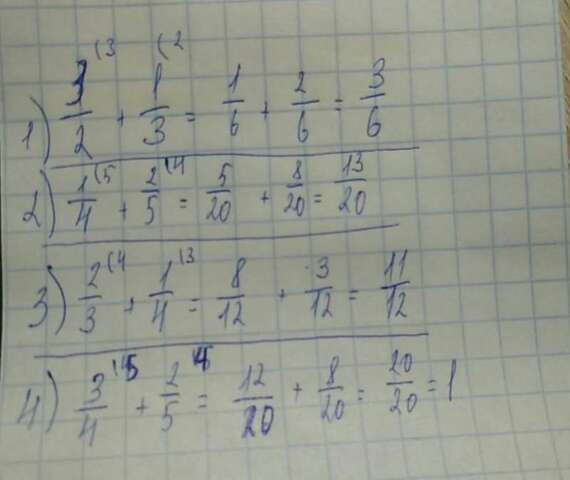 1) 3/2 (3 + 1/3 (2 = 1/6 + 2/6 = 3/6
2) 1/4 (5 + 2/5 (4 = 5/20 + 8/20 = 13/20
3) 2/3 (4 + 1/4 (3 = 8/12 + 3/12 = 11/12
4) 3/4 (5 + 2/5 (4 = 12/20 + 8/20 = 20/20 = 1